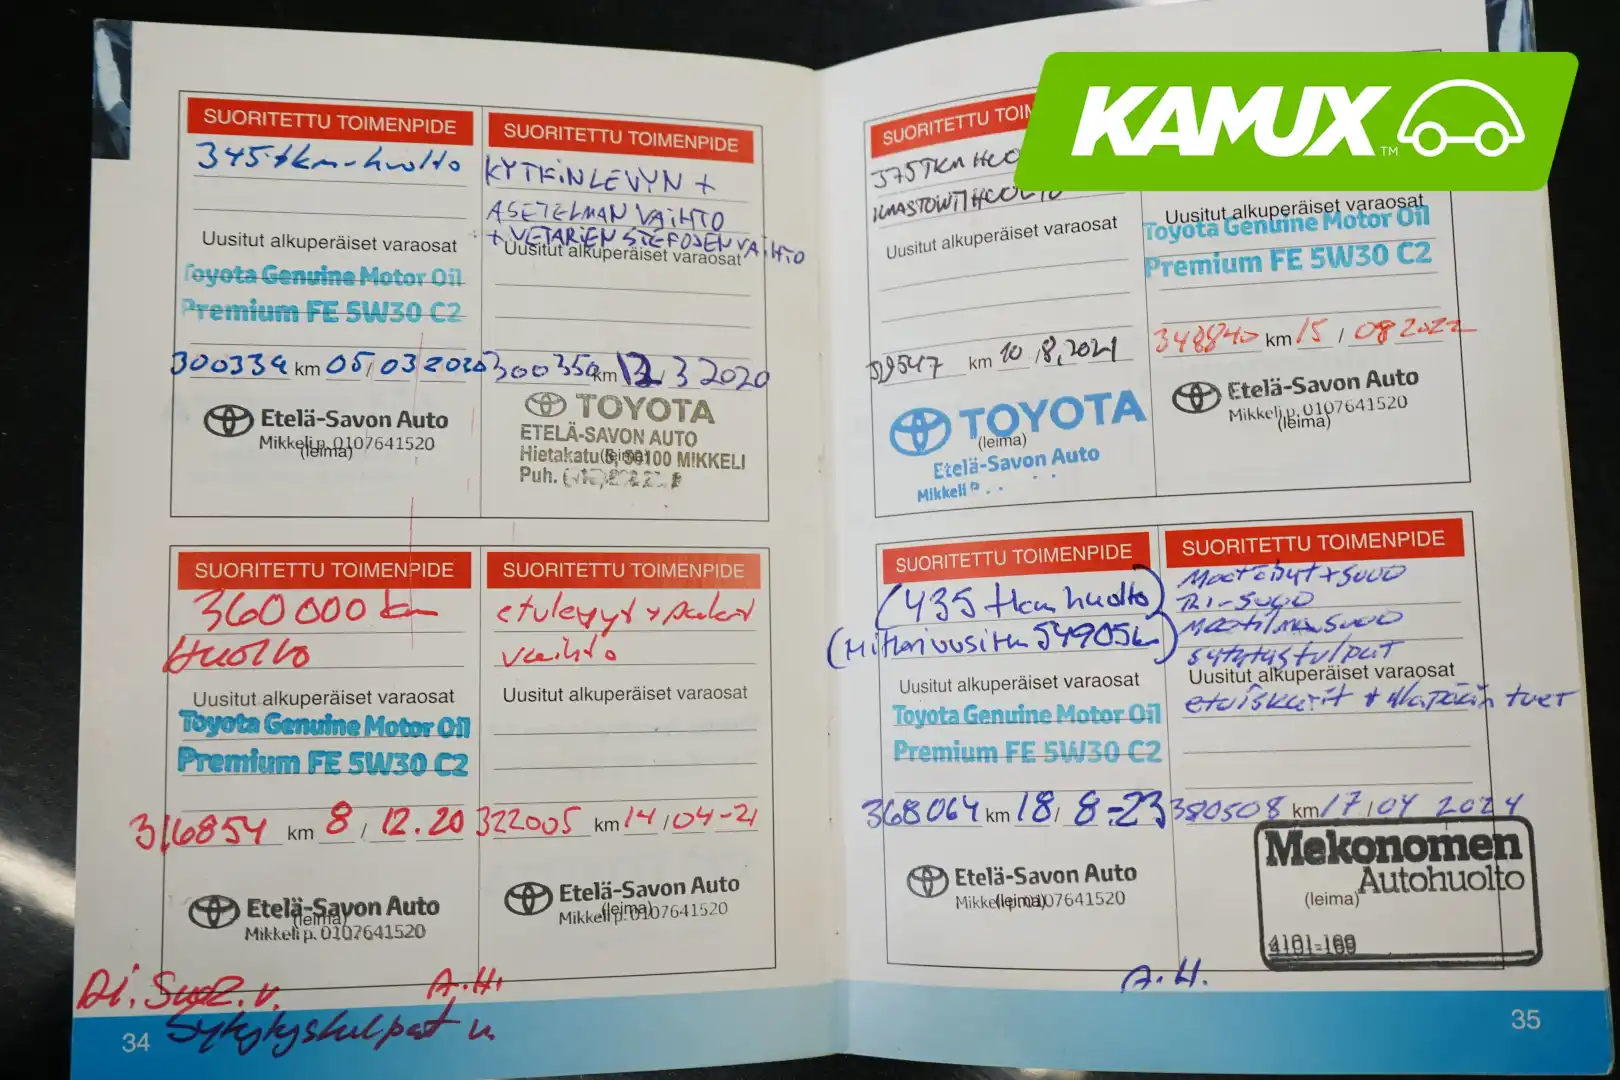 SUORITETTU TOIMENPIDE
345 tkm-huolto
Uusitut alkuperäiset varaosat
Toyota Genuine Motor Oil
Premium FE 5W30 C2
300334 km 05/03 2020
Etelä-Savon Auto
Mikkeli p. 0107641520
(leima)
SUORITETTU TOIMENPIDE
KYTKINLEVYN +
ASETELMAN VAIHTO
+ VETARIEN STEFOJEN VAIHTO
Uusitut alkuperäiset varaosat
300350 km 12/3 2020
TOYOTA
ETELÄ-SAVON AUTO
Hietakatu 50100 MIKKELI
(leima)
Puh.
SUORITETTU TOIMENPIDE
360000 km
Huolto
Uusitut alkuperäiset varaosat
Toyota Genuine Motor Oil
Premium FE 5W30 C2
316854 km 8/12.20
Etelä-Savon Auto
(leima)
Mikkeli p. 0107641520
SUORITETTU TOIMENPIDE
etulevyt + palat
vaihto
Uusitut alkuperäiset varaosat
322005 km 14/04-21
Etelä-Savon Auto
(leima)
Mikkeli p. 0107641520
A.H.
34
SUORITETTU TOIM
375TKM HUO
ILMASTOINTIHUOLTO
Uusitut alkuperäiset varaosat
329547 km 10/8,2021
TOYOTA
(leima)
Etelä-Savon Auto
Mikkeli P
KAMUX™
Uusitut alkuperäiset varaosat
Toyota Genuine Motor Oil
Premium FE 5W30 C2
348840 km 15/08 2022
Etelä-Savon Auto
Mikkeli p. 0107641520
(leima)
SUORITETTU TOIMENPIDE
(435 tkm huolto)
54905
Uusitut alkuperäiset varaosat
Toyota Genuine Motor Oil
Premium FE 5W30 C2
368064 km 18/8-23
Etelä-Savon Auto
Mikkeli p. 0107641520
(leima)
SUORITETTU TOIMENPIDE
suod
suod
suod
sytytystulpat
Uusitut alkuperäiset varaosat
etuiskarit +
380508 km 17/04 2024
Mekonomen
Autohuolto
(leima)
4101-160
A.H.
35